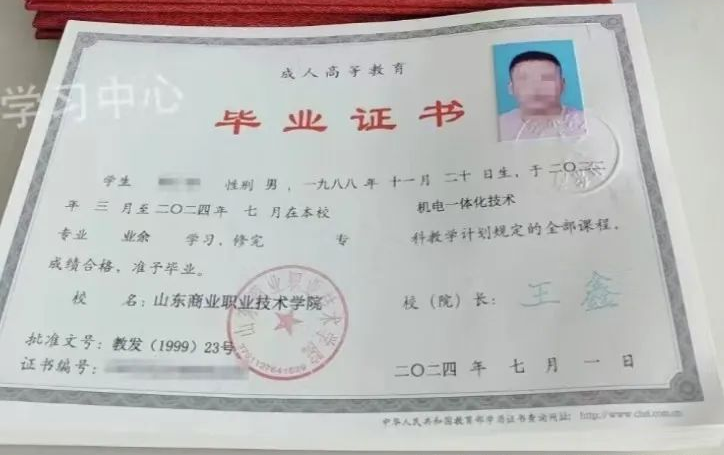 成人高等教育
学习中心
毕业证书
学生 性别 男，一九八八年 十一月 二十 日生，于 二〇二
年 三 月至二〇二四年 七 月在本校 机电一体化技术
专业 业余 学习，修完 专 科教学计划规定的全部课程，
成绩合格，准予毕业。
校 名：山东商业职业技术学院 校（院）长： 王鑫
批准文号：教发（1999）23号
证书编号：
二〇二四 年 七 月 一 日
中华人民共和国教育部学历证书查询网址：http://www.chsi.com.cn
山东商业职业技术学院